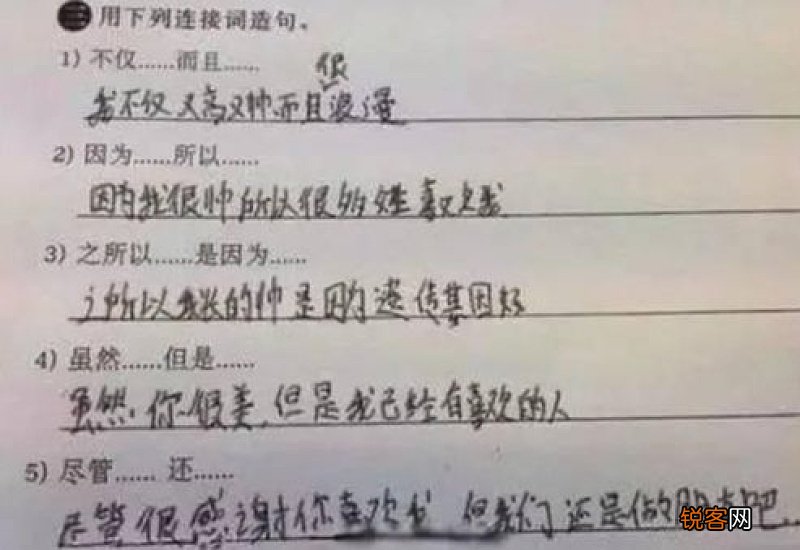 三 用下列连接词造句。
1) 不仅……而且……
很
我不仅又高又帅而且浪漫
2) 因为……所以……
因为我很帅所以很多女生喜欢我
3) 之所以……是因为……
之所以我长的帅是因为遗传基因好
4) 虽然……但是……
虽然你很美,但是我已经有喜欢的人
5) 尽管…… 还……
尽管很感谢你喜欢我 但我们还是做朋友吧..
锐客网